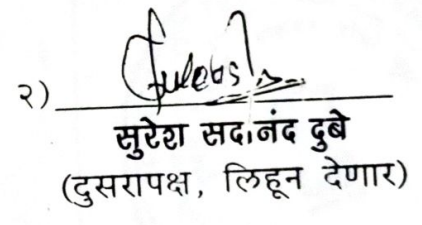 २)
सुरेश सदानंद दुबे
(दुसरापक्ष, लिहून देणार)